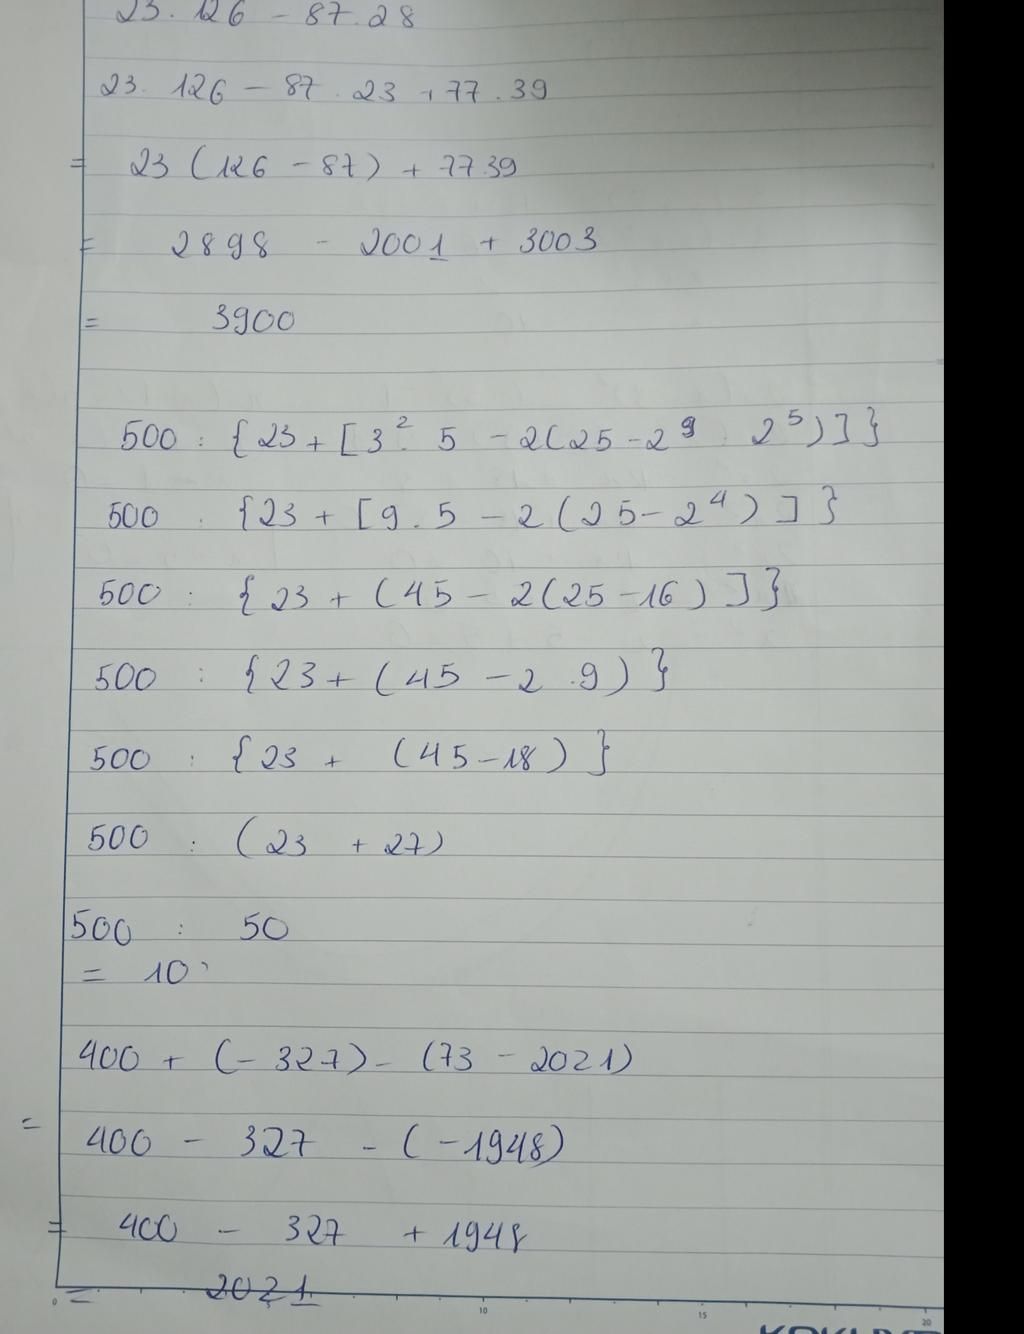 23. 126 - 87.28
23. 126 - 87 . 23 + 77 . 39
= 23 (126 - 87) + 77.39
= 2898 - 2001 + 3003
= 3900
500 : {23 + [3² . 5 - 2(25 - 2⁹ : 2⁵)]}
500 : {23 + [9 . 5 - 2(25 - 2⁴)]}
500 : {23 + (45 - 2(25 - 16)]}
500 : {23 + (45 - 2 .9)}
500 : {23 + (45 - 18)}
500 : (23 + 27)
500 : 50
= 10
400 + (- 327) - (73 - 2021)
= 400 - 327 - (-1948)
= 400 - 327 + 1948
= 2021
0 10 15 20